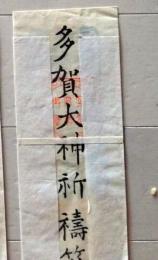 多賀大神祈禱